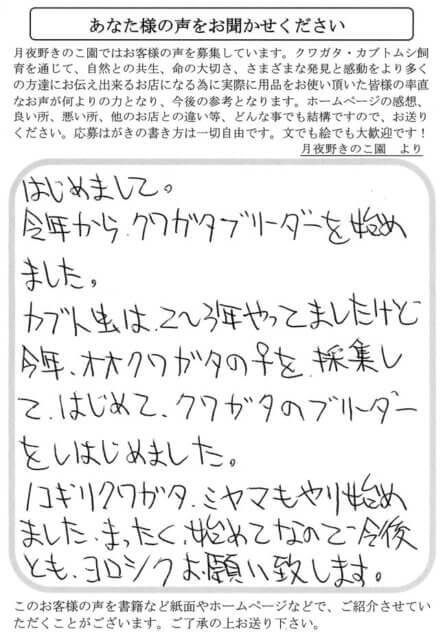 あなた様の声をお聞かせください
月夜野きのこ園ではお客様の声を募集しています。クワガタ・カブトムシ飼
育を通じて、自然との共生、命の大切さ、さまざまな発見と感動をより多く
の方達にお伝え出来るお店になる為に実際に用品をお使い頂いた皆様の率直
なお声が何よりの力となり、今後の参考となります。ホームページの感想、
良い所、悪い所、他のお店との違い等、どんな事でも結構ですので、お送り
ください。応募はがきの書き方は一切自由です。文でも絵でも大歓迎です！
月夜野きのこ園　より
はじめまして。
今年から、クワガタブリーダーを始め
ました。
カブト虫は、2～3年やってましたけど
今年、オオクワガタの♀を、採集し
て、はじめて、クワガタのブリーダー
をしはじめました。
ノコギリクワガタ、ミヤマもやり始め
ました、まったく、始めてなので今後
とも、ヨロシクお願い致します。
このお客様の声を書籍など紙面やホームページなどで、ご紹介させてい
ただくことがございます。ご了承の上お送り下さい。